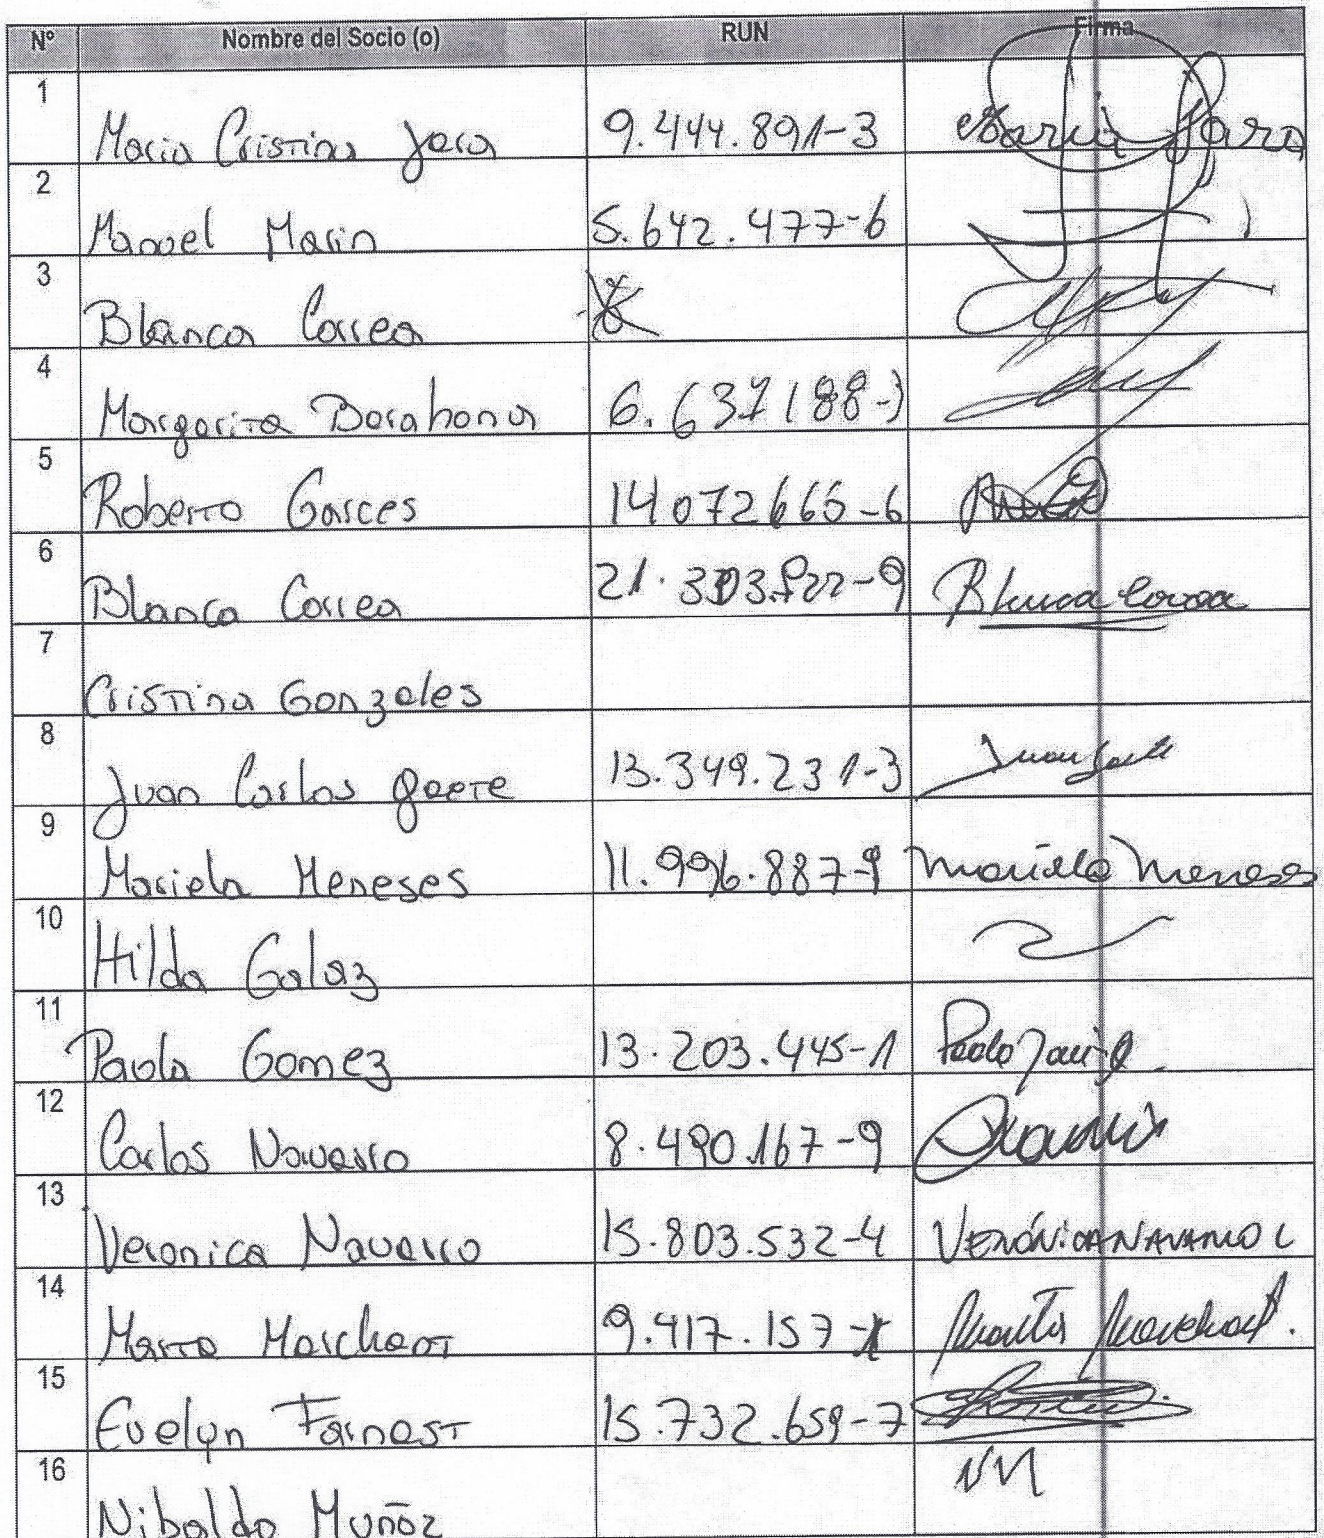 Nº Nombre del Socio (o) RUN Firma
1 Maria Cristina Jara 9.444.891-3 Maria Jara
2 Manuel Marin 5.642.477-6
3 Blanca Correa
4 Margarita Barahona 6.637188-3
5 Roberto Garces 14072665-6
6 Blanca Correa 21.303.822-9 Blanca Correa
7 Cristina Gonzales
8 Juan Carlos Gaete 13.349.231-3 Juan Gaete
9 Mariela Meneses 11.996.887-9 Mariela Meneses
10 Hilda Galaz
11 Paola Gomez 13.203.445-1
12 Carlos Navarro 8.490.167-9
13 Veronica Navarro 15.803.532-4 VERÓNICA NAVARRO C
14 Marta Marchant 9.417.157- Marta Marchant.
15 Evelyn Farnast 15.732.659-7
16 Nibaldo Muñoz NM